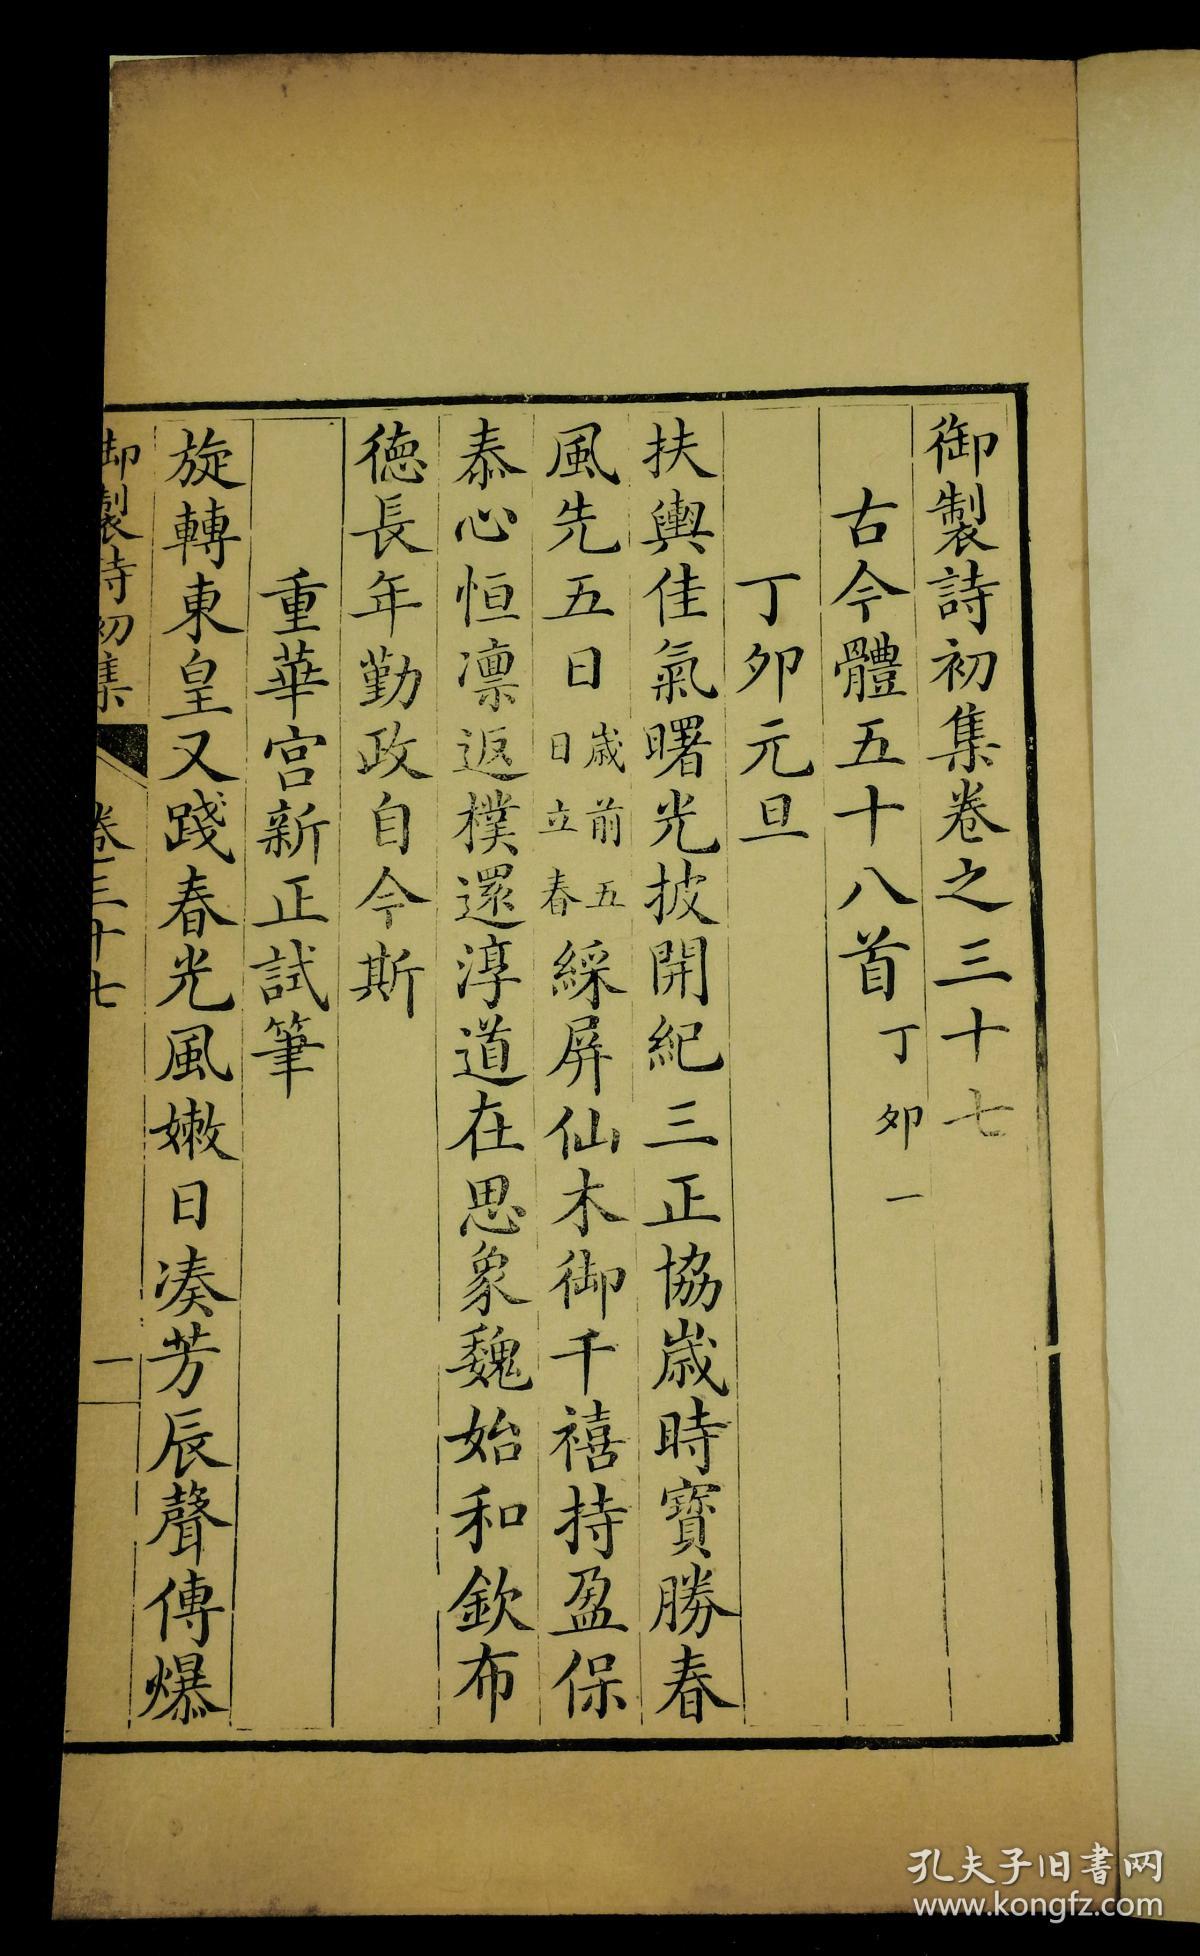 御製詩初集卷之三十七
古今體五十八首丁卯一
丁卯元旦
扶輿佳氣曙光披開紀三正協歲時寶勝春
風先五日歲前五日立春綵屏仙木御千禧持盈保
泰心恒凛返樸還淳道在思象魏始和欽布
德長年勤政自今斯
重華宮新正試筆
旋轉東皇又踐春光風嫩日湊芳辰聲傳爆
御製詩初集 卷三十七 一
孔夫子旧书网
www.kongfz.com